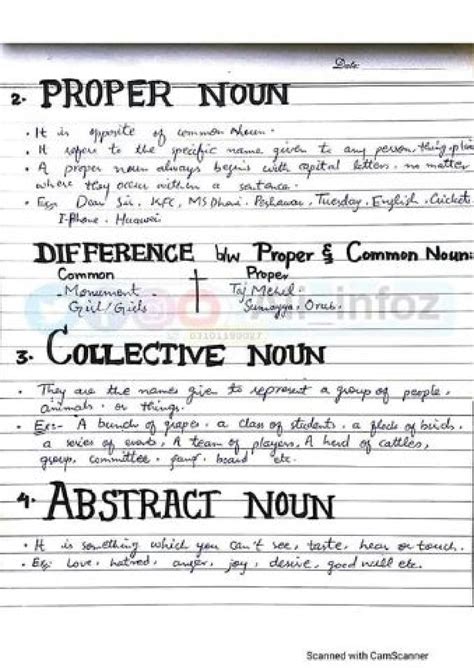 Date:
2. PROPER NOUN
• It is opposite of common Noun.
• It refers to the specific name given to any person, thing, place
• A proper noun always begins with capital letters, no matter
where they occur within a sentence.
• Eg: Dear Sir, KFC, MS Dhoni, Peshawar, Tuesday, English, Cricket
I-Phone, Huawei
DIFFERENCE b/w Proper & Common Noun:
Common Proper
Monument Taj Mehel
Girl/Girls Sumayya, Orub.
infoz
03101199027
3. COLLECTIVE NOUN
• They are the names given to represent a group of people,
animals or things.
• Ex:- A bunch of grapes, a class of students, a flock of birds,
a series of events, A team of players, A herd of cattles,
group, committee, gang, board etc.
4. ABSTRACT NOUN
• It is something which you can't see, taste, hear or touch.
• Eg: Love, hatred, anger, joy, desire, good will etc.
Scanned with CamScanner